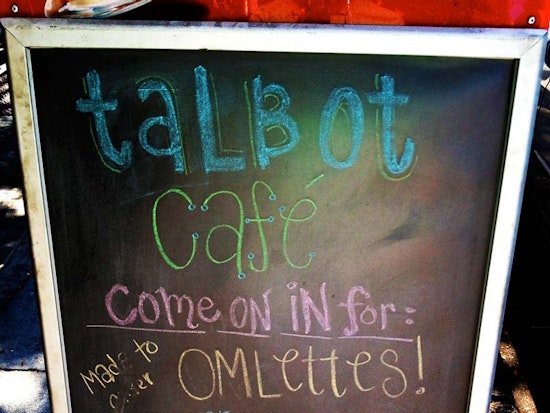 talBot
café
Come on in for:
Made to
order
OMLettes!